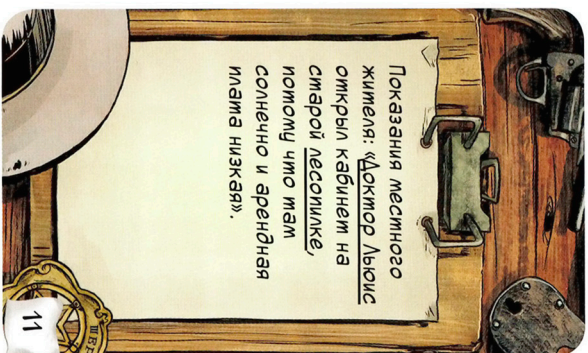 Показания местного
жителя: «Доктор Льюис
открыл кабинет на
старой лесопилке,
потому что там
солнечно и арендная
плата низкая».
11
ШЕР